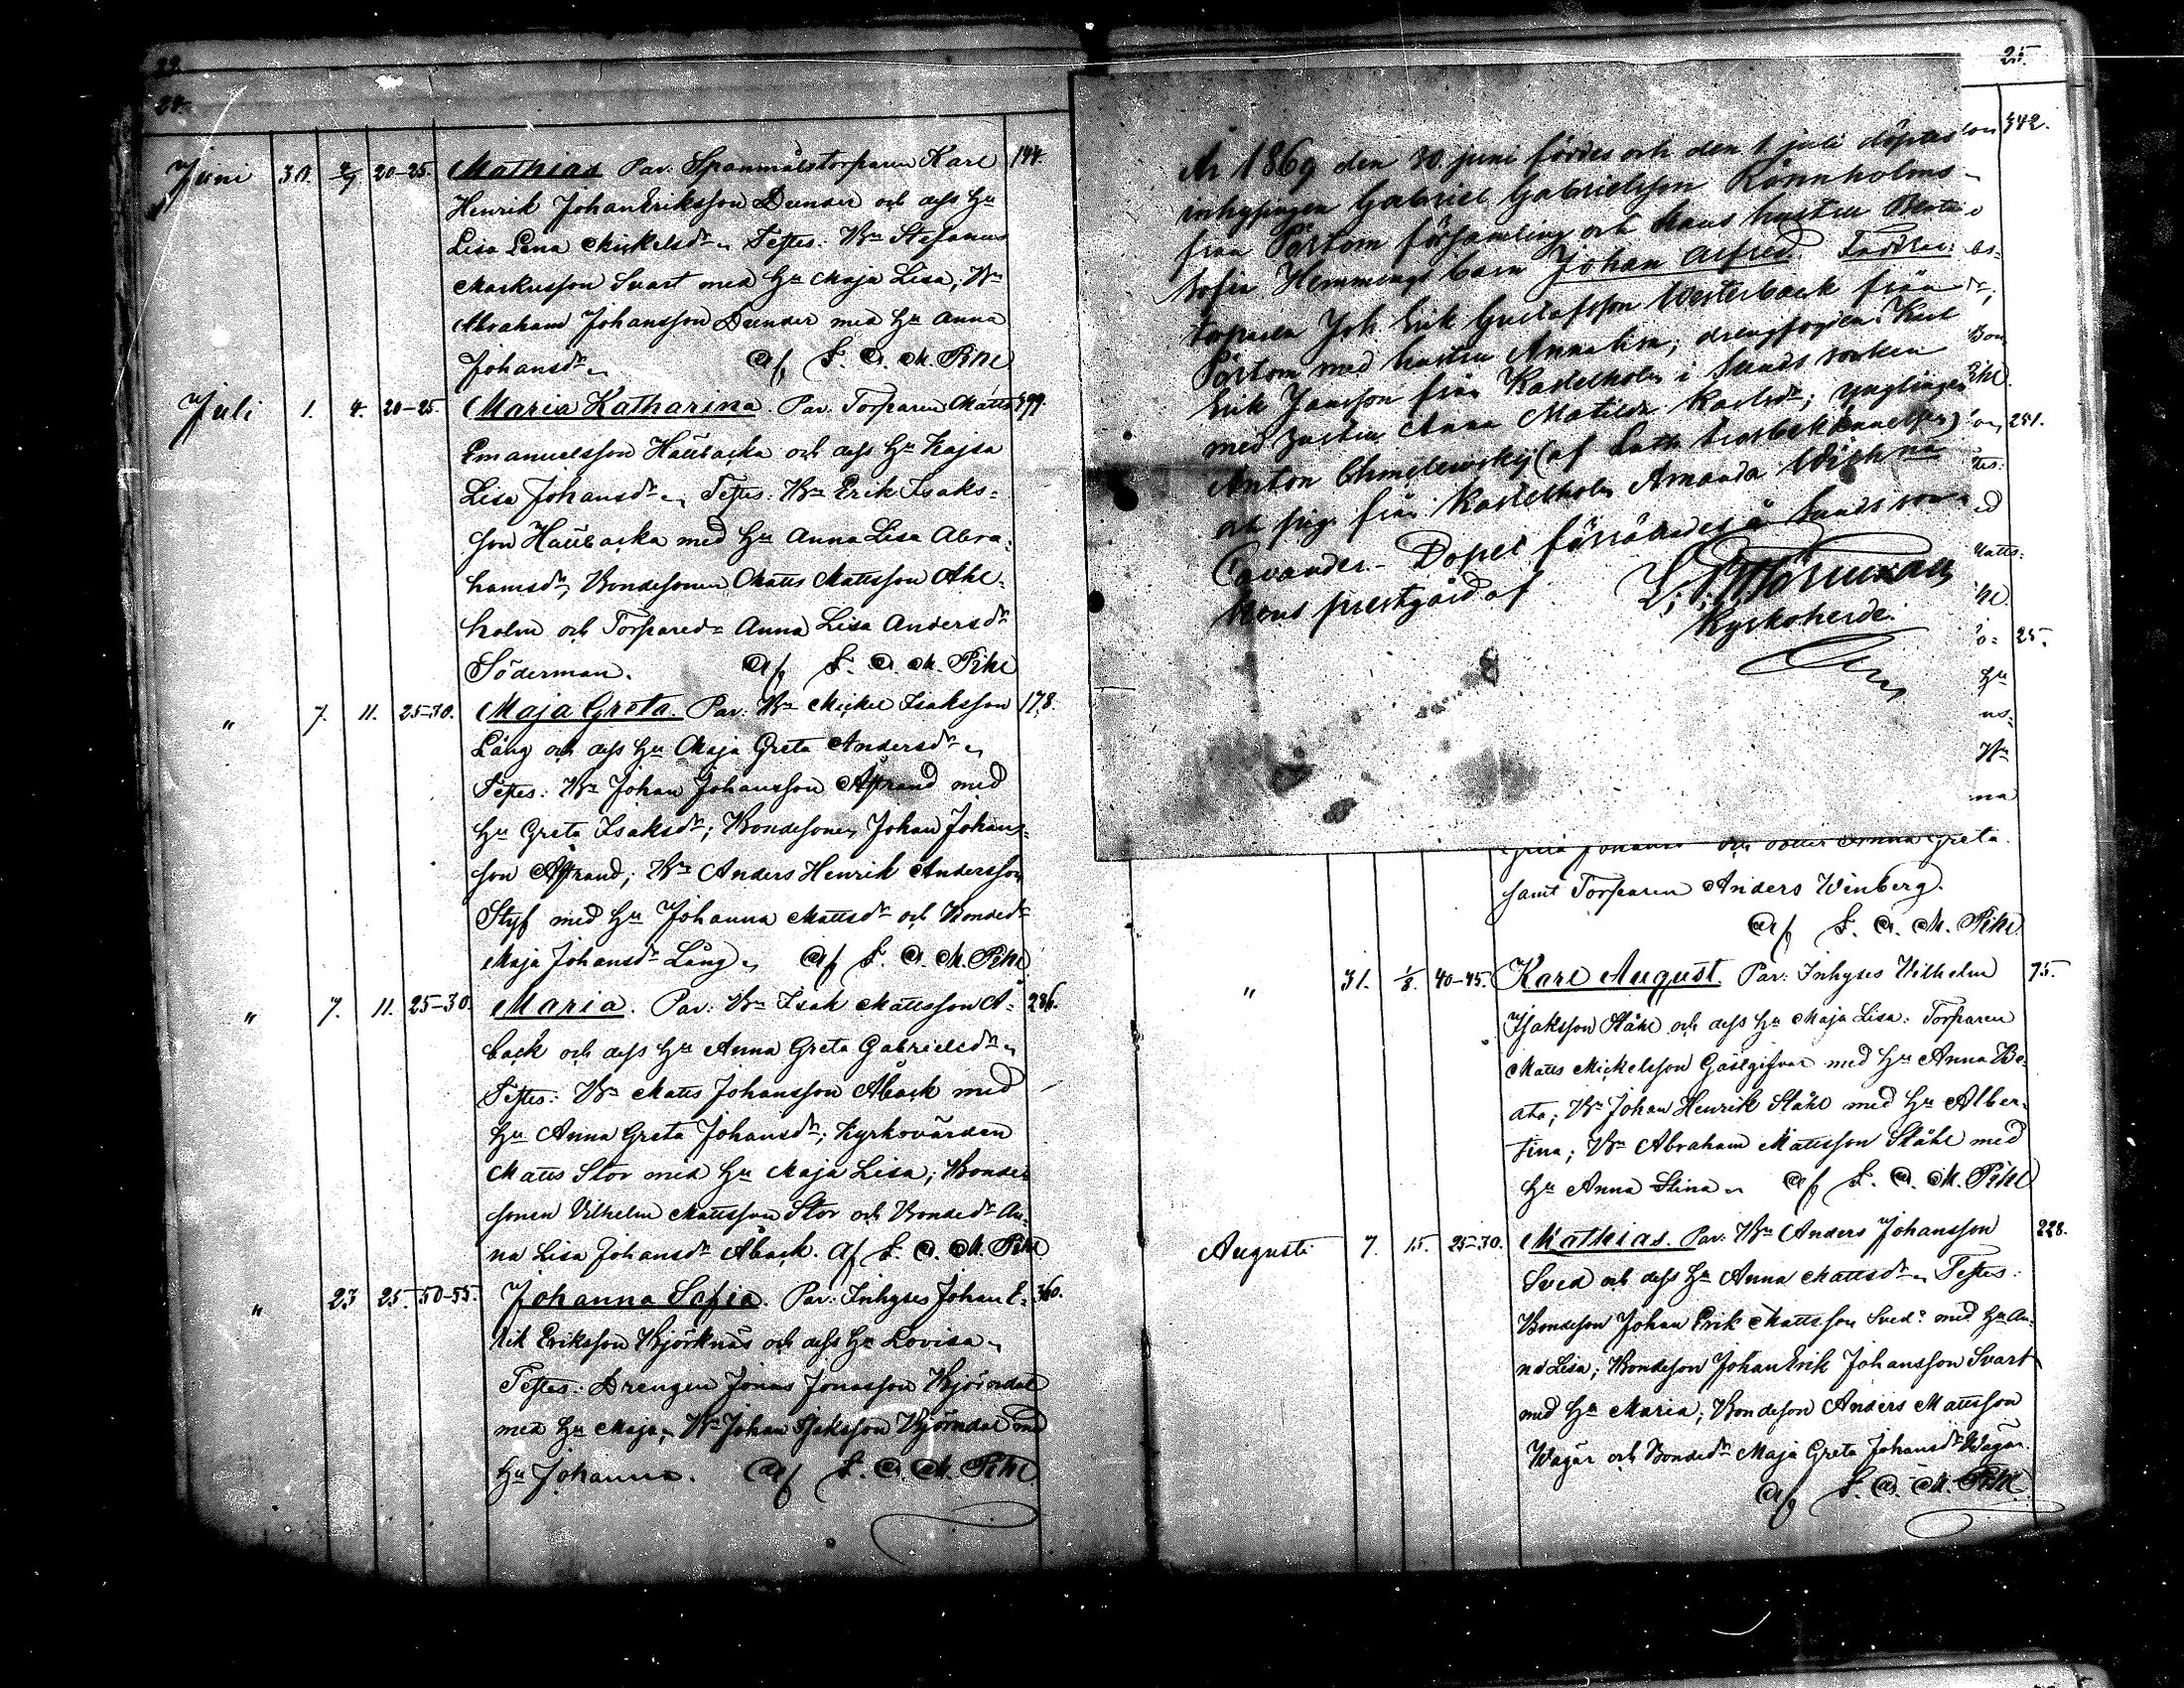 22.
24.
Juni 30. 2/7 20-25. Mathias Par: Spanmålstorparen Karl 144.
Henrik Johan Eriksson Dunder och dess Hu
Lisa Lena Mickelsdr. Testes: Bn Stefanus
Markusson Svart med Hu Maja Lisa; Bn
Abraham Johansson Dunder med Hu Anna
Johansdr. Af F. A. M. Pihl
Juli 1. 4. 20-25. Maria Katharina. Par. Torparen Matts 399.
Emanuelsson Haübacka och dess Hu Kajsa
Lisa Johansdr. Testes: Bn Erik Isaks-
son Haübacka med Hu Anna Lisa Abra-
hamsdr, Bondesonen Matts Mattsson Ahl-
holm och Torparedr Anna Lisa Andersdr
Söderman. Af F. A. M. Pihl
" 7. 11. 25-30. Maja Greta. Par: Bn Mickel Isaksson 178.
Lång och dess Hu Maja Greta Andersdr.
Testes: Bn Johan Johansson Åstrand med
Hu Greta Isaksdr; Bondesonen Johan Johans-
son Åstrand; Bn Anders Henrik Andersson
Styf med Hu Johanna Mattsdr och Bondedr
Maja Johansdr Lång. Af F. A. M. Pihl
" 7. 11. 25-30. Maria. Par: Bn Isak Mattsson Å- 286.
back och dess Hu Anna Greta Gabrielsdr.
Testes: Bn Matts Johansson Åback med
Hu Anna Greta Johansdr; Kyrkovärden
Matts Stor med Hu Maja Lisa; Bonde-
sonen Vilhelm Mattsson Stor och Bondedr An-
na Lisa Johansdr Åback. Af F. A. M. Pihl
" 23 25. 50-55. Johanna Sofia. Par: Inhyses Johan E- 360.
rik Eriksson Björknäs och dess Hu Lovisa.
Testes: Drengen Jonas Jonasson Björndal
med Hu Maja; Bn Johan Isaksson Björndal med
Hu Johanna. Af F. A. M. Pihl
25.
År 1869 den 30. juni föddes och den 1. juli döptes
inhysingen Gabriel Gabrielsson Rönnholms
från Pörtom församling och hans hustru Berta
Sofia Hemmings barn Johan Alfred. Faddrar:
torparen Joh. Erik Gustafsson Westerback från
Pörtom med hustru Anna Lisa; drengfogden Karl
Erik Jansson från Kastelholm i Sunds socken
med hustru Anna Matilda Karlsdr; ynglingen
Anton Chmelewsky (af Luth. trosbekännelsen)
och pig. från Kastelholm Amanda
Cavander. Dopet förrättades å Sunds soc-
kens prestgård af
Kyrkoherde.
342.
251.
25.
samt Torparen Anders Winberg.
Af F. A. M. Pihl
" 31. 1/8. 40-45. Karl August. Par: Inhyses Vilhelm 75.
Isaksson Ståhl och dess Hu Maja Lisa: Torparen
Matts Mickelsson Gästgifvar med Hu Anna Be-
ata; Bn Johan Henrik Ståhl med Hu Alber-
tina; Bn Abraham Mattsson Ståhl med
Hu Anna Stina. Af F. A. M. Pihl
Augusti 7. 15. 25-30. Mathias. Par: Bn Anders Johansson 228.
Sved och dess Hu Anna Mattsdr. Testes:
Bondeson Johan Erik Mattsson Sved med Hu An-
na Lisa; Bondeson Johan Erik Johansson Svart
med Hu Maria; Bondeson Anders Mattsson
Wägar och Bondedr Maja Greta Johansdr Wägar
Af F. A. M. Pihl